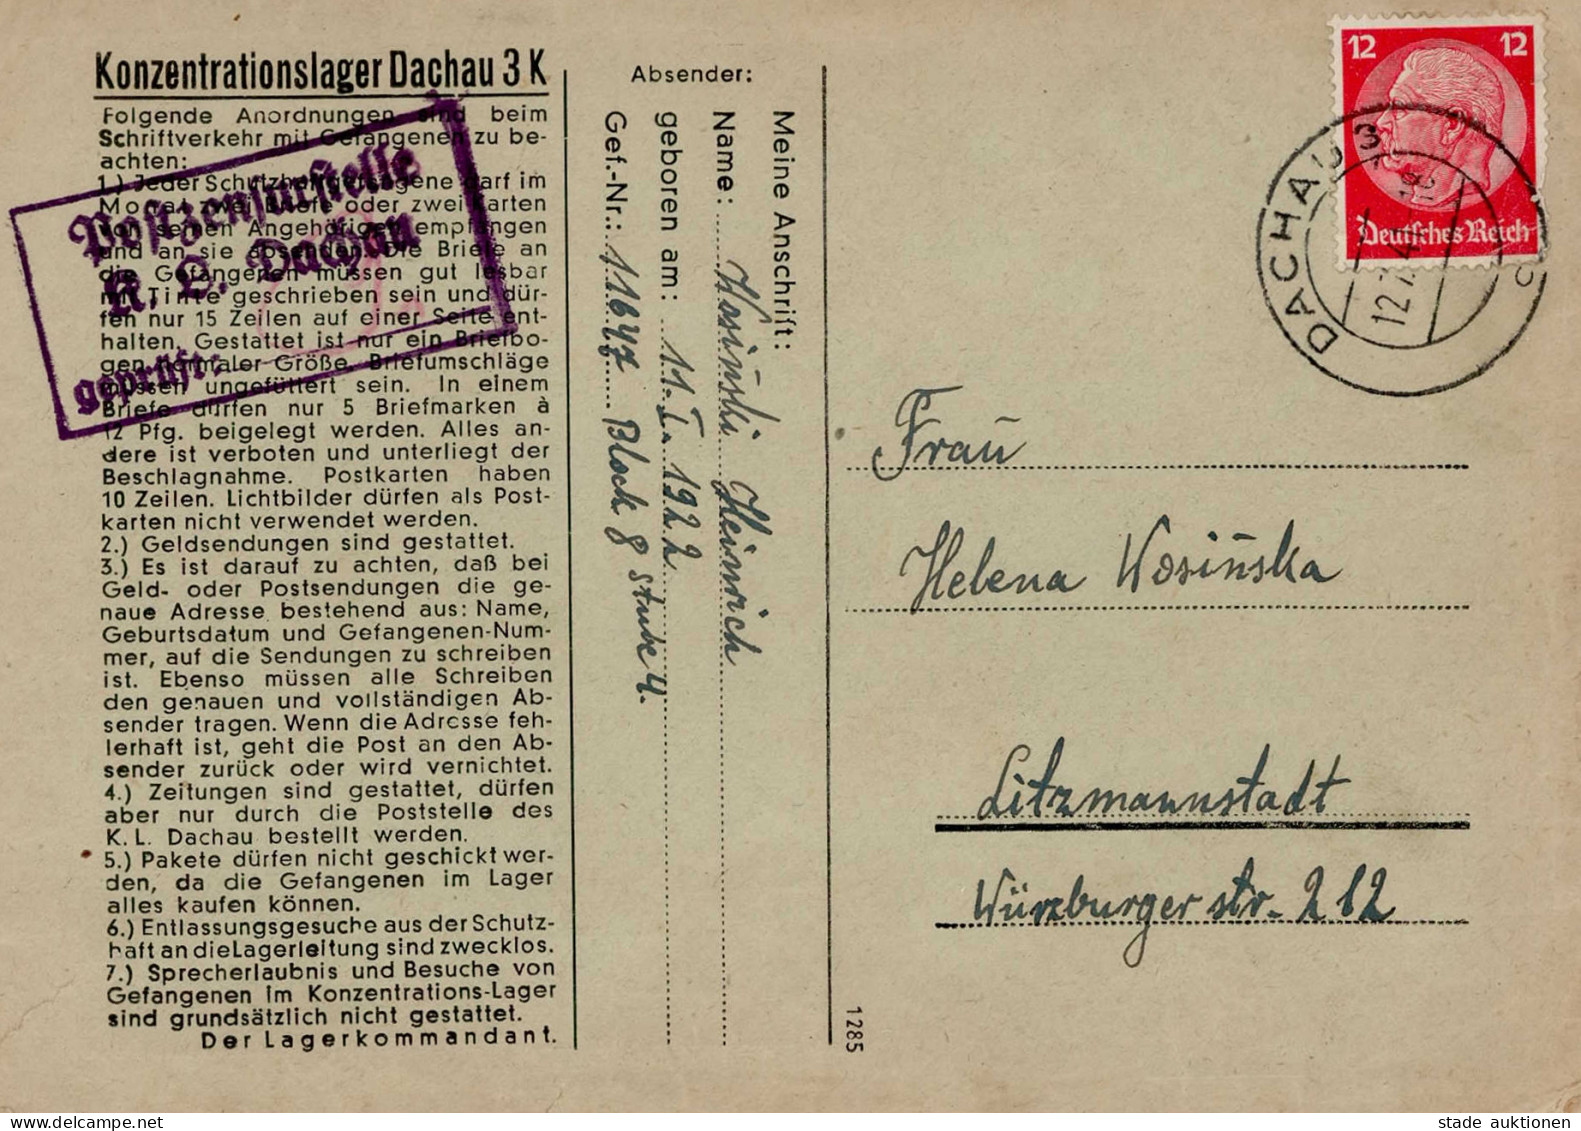 Konzentrationslager Dachau 3 K
Folgende Anordnungen sind beim
Schriftverkehr mit Gefangenen zu be-
achten:
1.) Jeder Schutzhaftgefangene darf im
Monat zwei Briefe oder zwei Karten
von seinen Angehörigen empfangen
und an sie absenden. Die Briefe an
die Gefangenen müssen gut lesbar
mit Tinte geschrieben sein und dür-
fen nur 15 Zeilen auf einer Seite ent-
halten. Gestattet ist nur ein Briefbo-
gen normaler Größe. Briefumschläge
müssen ungefüttert sein. In einem
Briefe dürfen nur 5 Briefmarken à
12 Pfg. beigelegt werden. Alles an-
dere ist verboten und unterliegt der
Beschlagnahme. Postkarten haben
10 Zeilen. Lichtbilder dürfen als Post-
karten nicht verwendet werden.
2.) Geldsendungen sind gestattet.
3.) Es ist darauf zu achten, daß bei
Geld- oder Postsendungen die ge-
naue Adresse bestehend aus: Name,
Geburtsdatum und Gefangenen-Num-
mer, auf die Sendungen zu schreiben
ist. Ebenso müssen alle Schreiben
den genauen und vollständigen Ab-
sender tragen. Wenn die Adresse feh-
lerhaft ist, geht die Post an den Ab-
sender zurück oder wird vernichtet.
4.) Zeitungen sind gestattet, dürfen
aber nur durch die Poststelle des
K. L. Dachau bestellt werden.
5.) Pakete dürfen nicht geschickt wer-
den, da die Gefangenen im Lager
alles kaufen können.
6.) Entlassungsgesuche aus der Schutz-
haft an die Lagerleitung sind zwecklos.
7.) Sprecherlaubnis und Besuche von
Gefangenen im Konzentrations-Lager
sind grundsätzlich nicht gestattet.
Der Lagerkommandant.
Postzensurstelle
K. L. Dachau
geprüft:
Absender:
Meine Anschrift:
Name: Wosiński Heinrich
geboren am: 11. I. 1922
Gef.-Nr.: 11647 Block 8 Stube 4.
1285
12 12
Deutsches Reich
DACHAU 3
Frau
Helena Wosińska
Litzmannstadt
Würzburger str. 212
stade auktionen